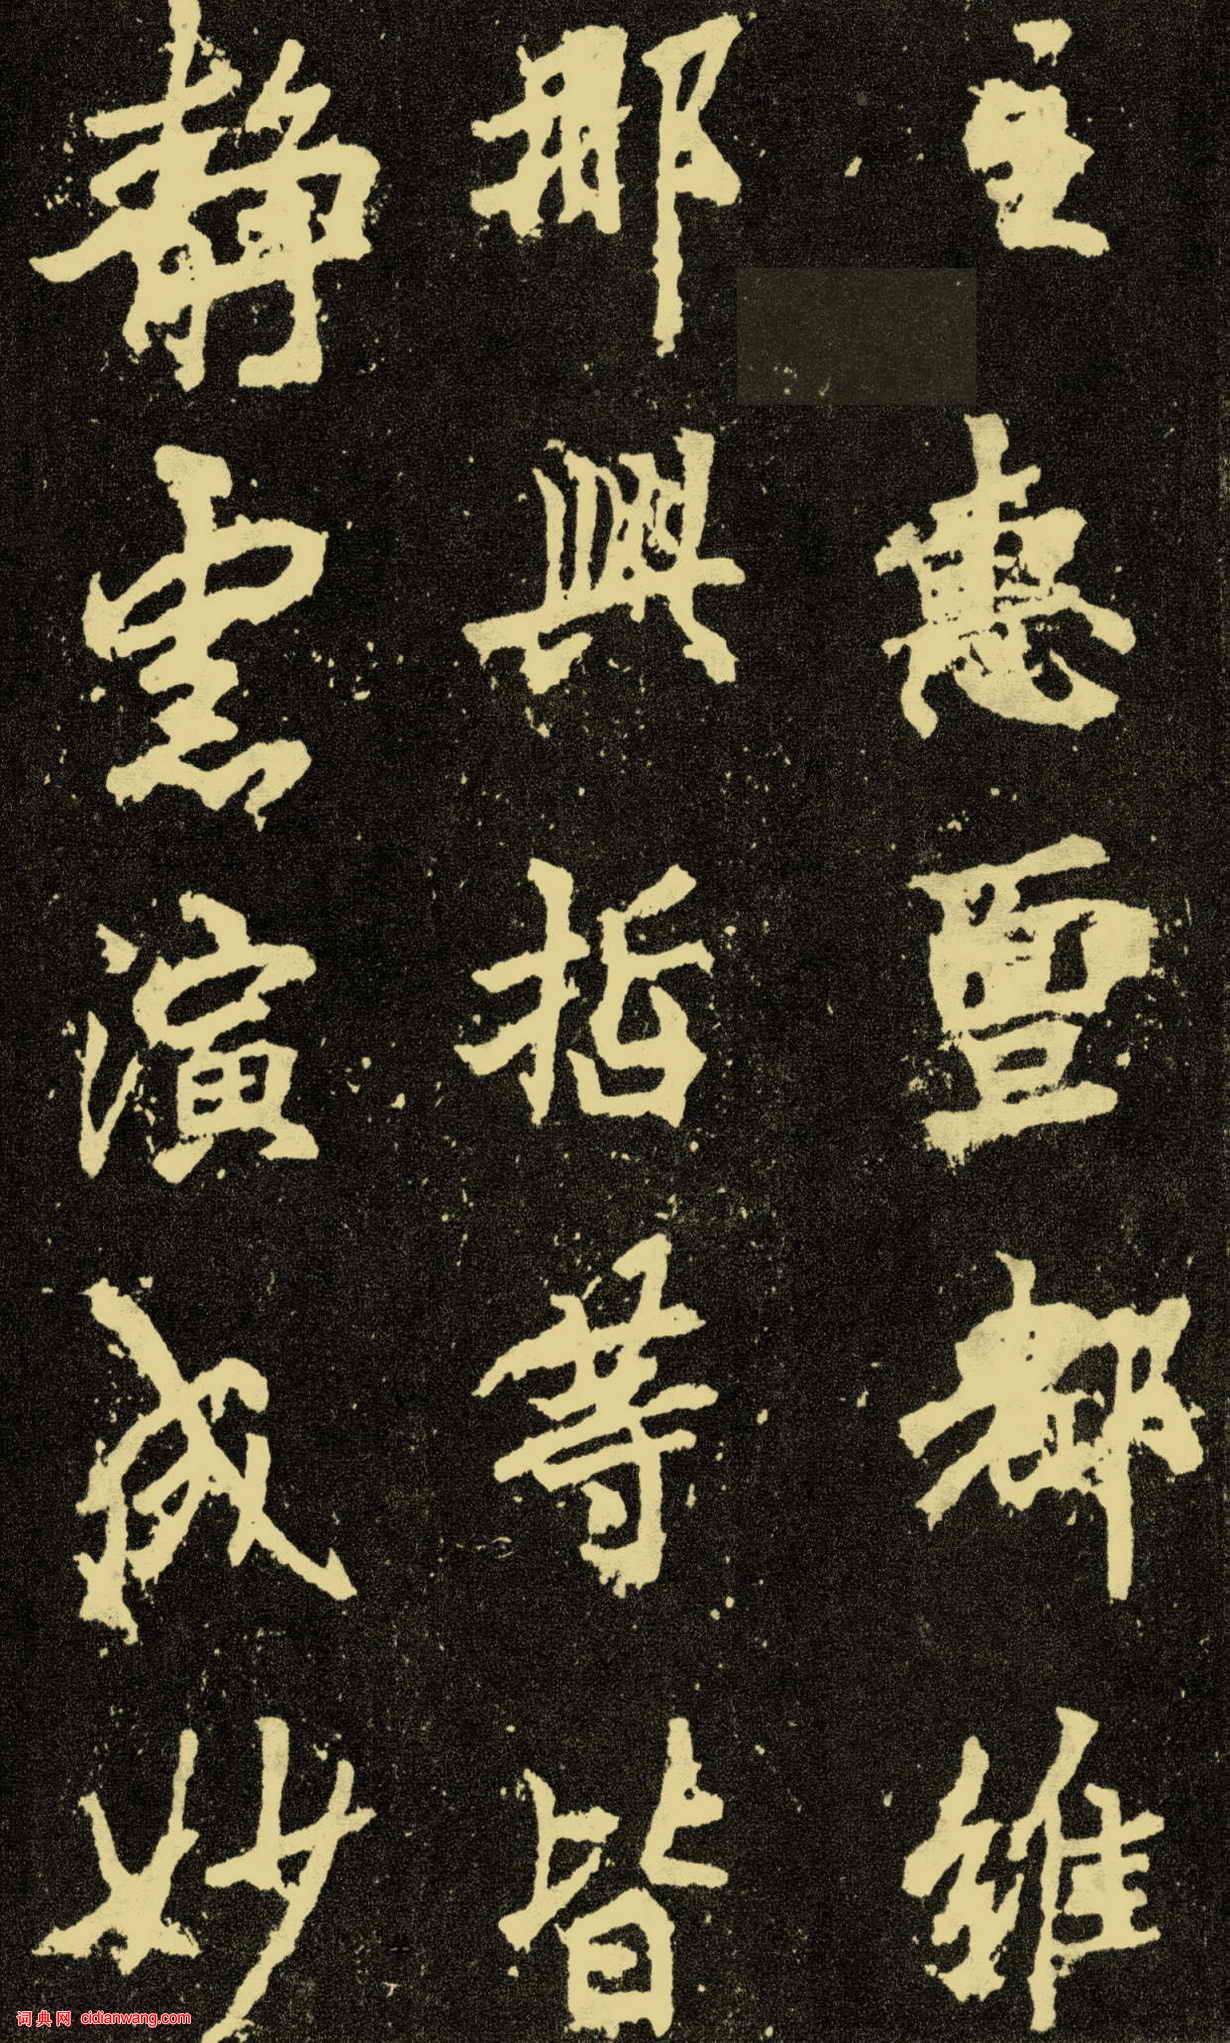 主惠晋都維
那興哲等皆
靜慮演成妙
词典网 cidianwang.com